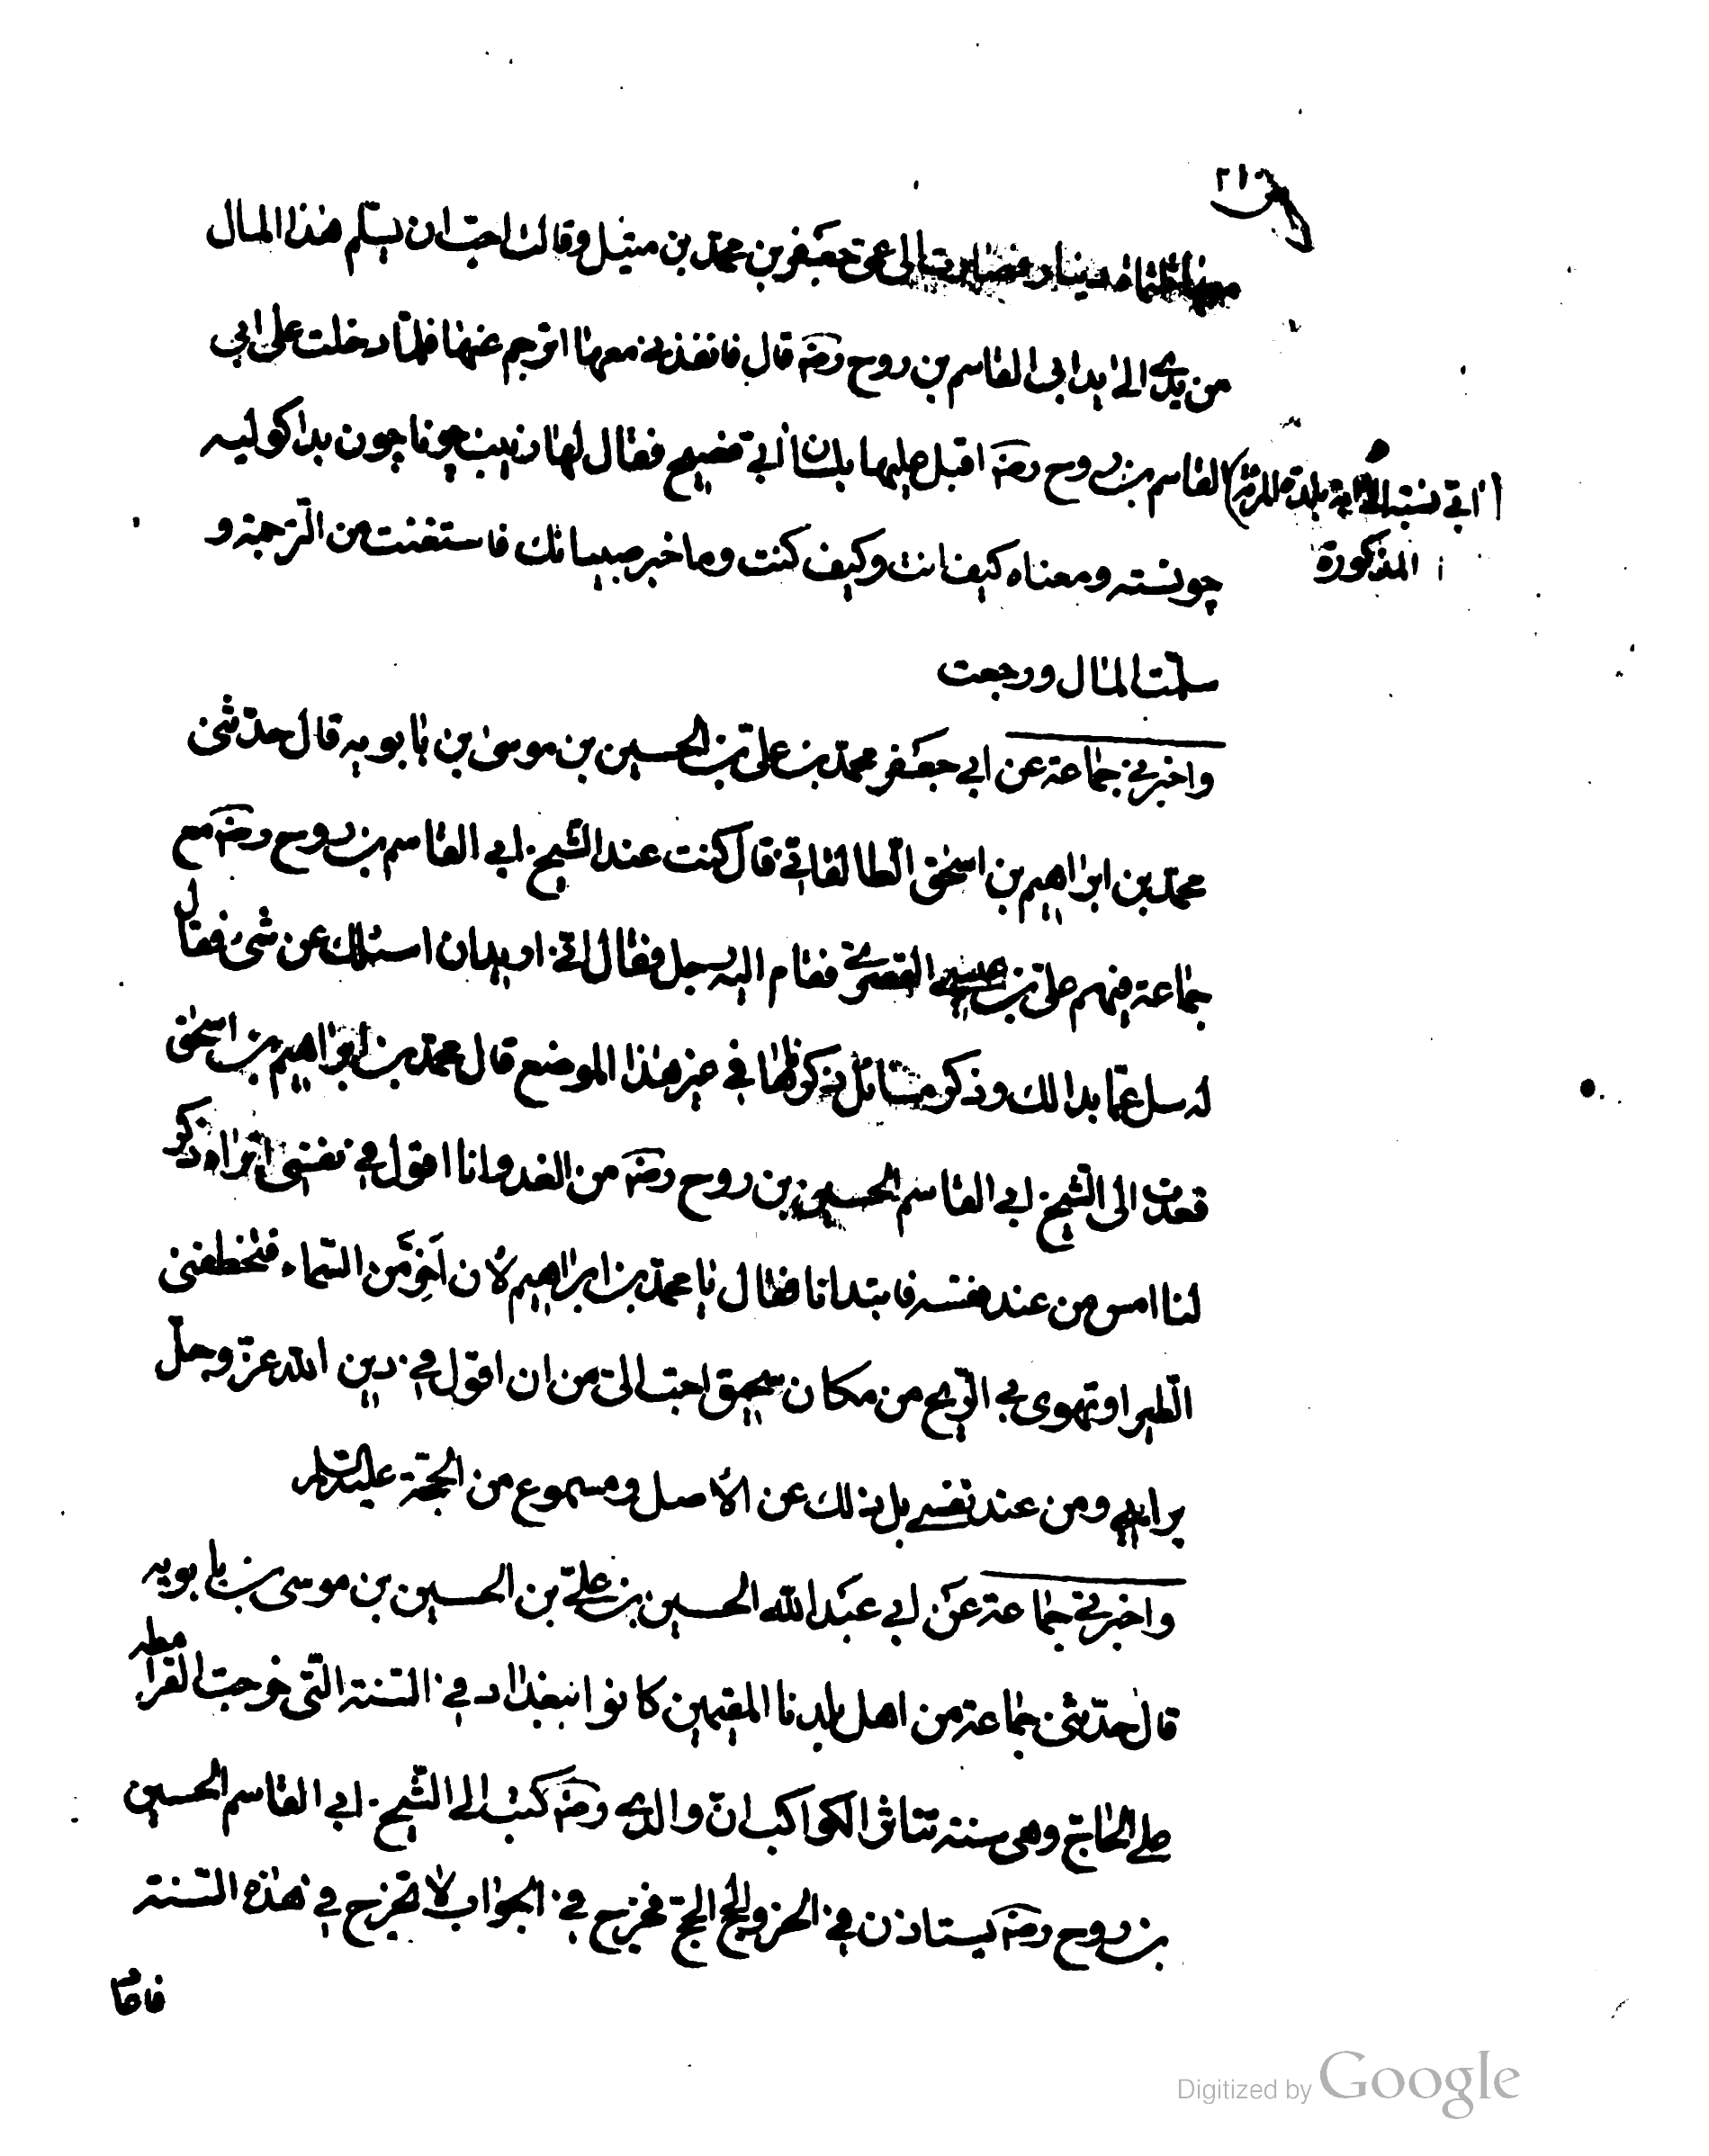 ٢١٠
معها ثلثمائة دينار فصارت الى عمى جعفر بن محمد بن متيل وقالت احب ان يسلم هذا المال
من يدى الى يد ابى القاسم بن روح رضه قال فانفذنى معها اترجم عنها فلما دخلت على ابى
القاسم بن روح رضه اقبل عليها بلسان آبى فصيح فقال لها زينب چونا چون بدا كوليه
( آبى نسبة الى آبه بلدة للرى
المذكورة
چونسته ومعناه كيف انت وكيف كنت وما خبر صبيانك فاستغنت من الترجمة و
سلمت المال ورجعت
واخبرنى جماعة عن ابى جعفر محمد بن على بن الحسين بن موسى بن بابويه قال حدثنى
محمد بن ابراهيم بن اسحق الطالقانى قال كنت عند الشيخ ابى القاسم بن روح رضه مع
جماعة فيهم على بن عيسى القصرى فقام اليه رجل فقال انى اريد ان اسئلك عن شئ فقال
له سل عما بدالك وذكر مسائل ذكرناها فى غير هذا الموضع قال محمد بن ابراهيم بن اسحق
فعدت الى الشيخ ابى القاسم الحسين بن روح رضه من الغد وانا اقول فى نفسى اتراه ذكر
لنا امس من عند نفسه فابتدانا فقال يا محمد بن ابراهيم لان اَخِرَّ من السماء فتخطفنى
الطير او تهوى بى الريح من مكان سحيق احب الى من ان اقول فى دين الله عز وجل
برايى ومن عند نفسى بل ذلك عن الاصل ومسموع من الحجة عليه السلام
واخبرنى جماعة عن ابى عبد الله الحسين بن على بن الحسين بن موسى بن بابويه
قال حدثنى جماعة من اهل بلدنا المقيمين كانوا ببغداد فى السنة التى خرجت القرامطه
على الحاج وهى سنة تناثر الكواكب ان والدى رضه كتب الى الشيخ ابى القاسم الحسين
بن روح رضه يستاذن فى الخروج الى الحج فخرج فى الجواب لا تخرج فى هذه السنة
فاعا
Digitized by Google